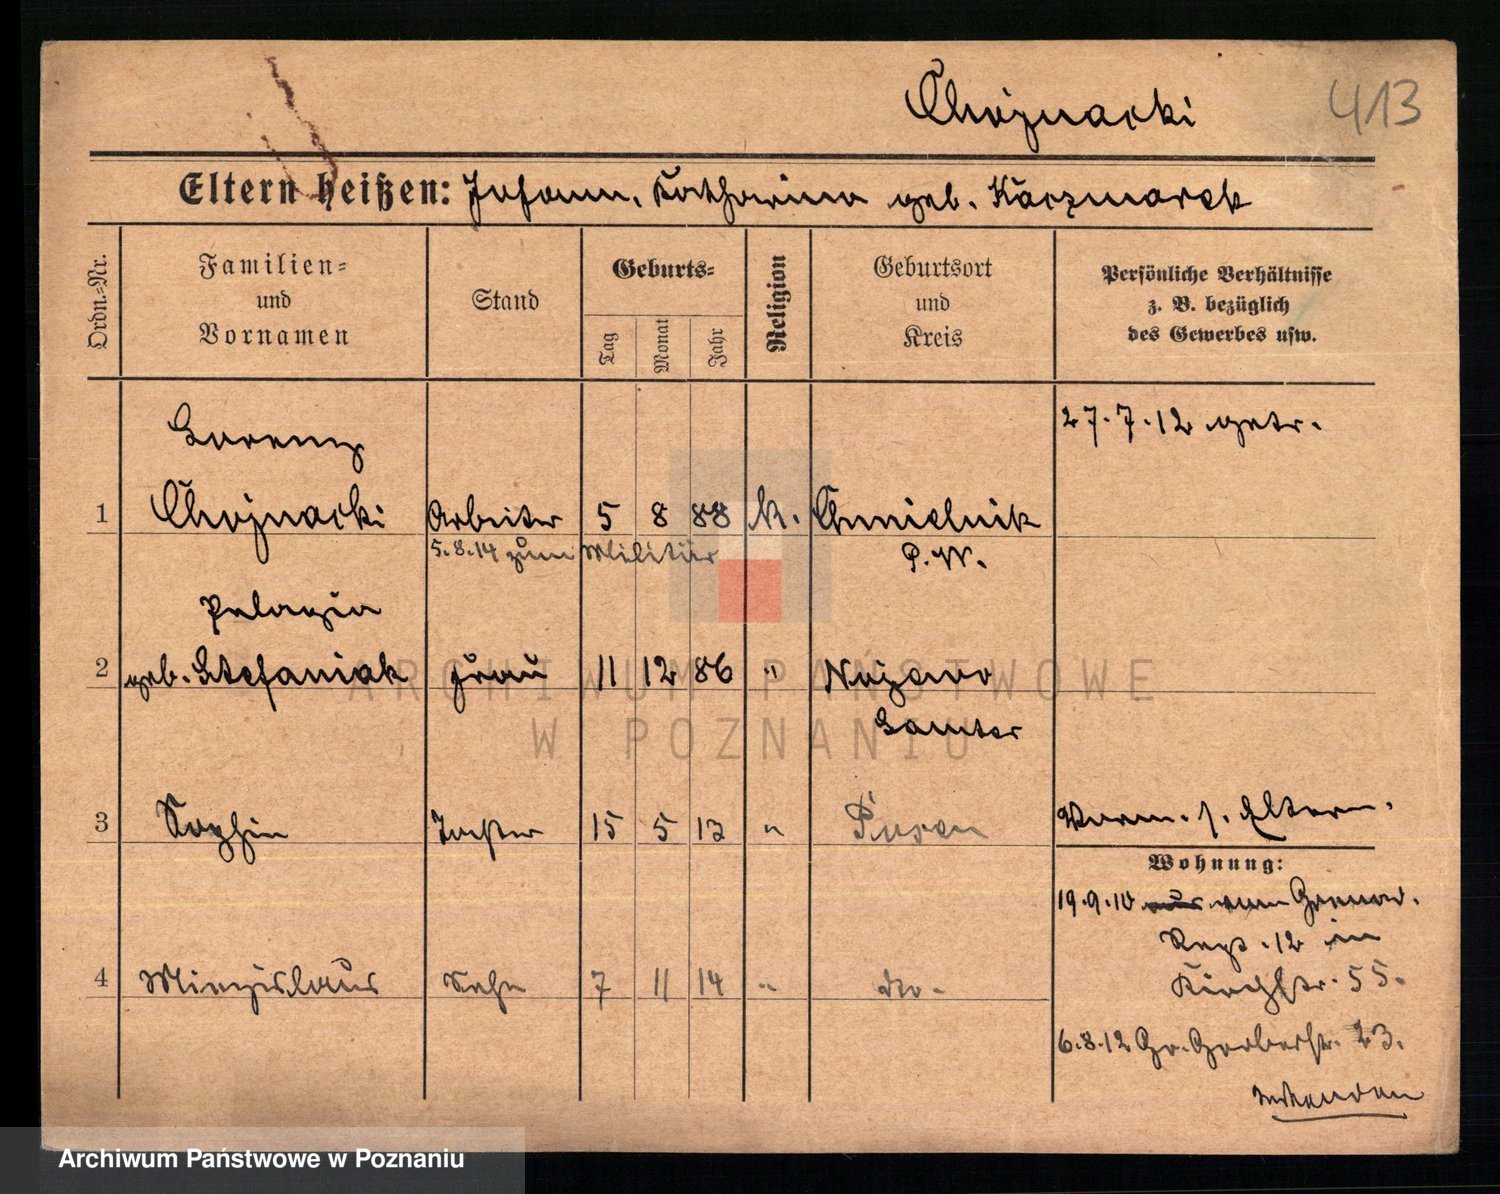 Chojnacki
413
Eltern heißen: Johann, Katharina geb. Kaczmarek
Ordn.-Nr.
Familien-
und
Vornamen
Stand
Geburts-
Tag
Monat
Jahr
Religion
Geburtsort
und
Kreis
Persönliche Verhältnisse
z. B. bezüglich
des Gewerbes usw.
27.7.12 getr.
Lorenz
1 Chojnacki Arbeiter 5 8 88 k. Chmielnik
5.8.14 zum Militär
P.W.
Pelagia
2 geb. Stefaniak Frau 11 12 86 " 
Samter
3 Sophie Tochter 15 5 13 " Posen
Verm. s. Eltern.
Wohnung:
19.9.10 vom Grenad.
Regt. 12 in
4 Miezislaus Sohn 7 11 14 " do.
Kirchstr. 55.
6.8.12 Gr. Gerberstr. 23.
ARCHIWUM PAŃSTWOWE
W POZNANIU
Archiwum Państwowe w Poznaniu